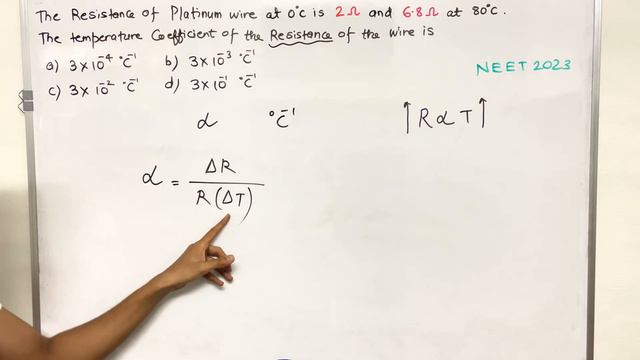 The Resistance of Platinum wire at 0°C is 2 Ω and 6.8 Ω at 80°C.
The temperature Coefficient of the Resistance of the wire is
a) 3 × 10⁻⁴ °C⁻¹ b) 3 × 10⁻³ °C⁻¹
c) 3 × 10⁻² °C⁻¹ d) 3 × 10⁻¹ °C⁻¹
NEET 2023
α °C⁻¹ ↑R ∝ T↑
α = ΔR / R(ΔT)